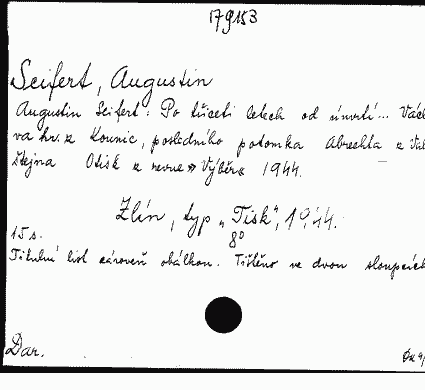 17 g 153
Seifert, Augustin
Augustin Seifert: Po třiceti letech od úmrtí... Václ
va hr. z Kounic, posledního potomka Albrechta z Val
štejna Otisk z revue "Výběr" 1944.
Zlín, typ „Tisk", 1944.
15 s. 8°
Titulní list zároveň obálkou. Tištěno ve dvou sloupcích
Dar.